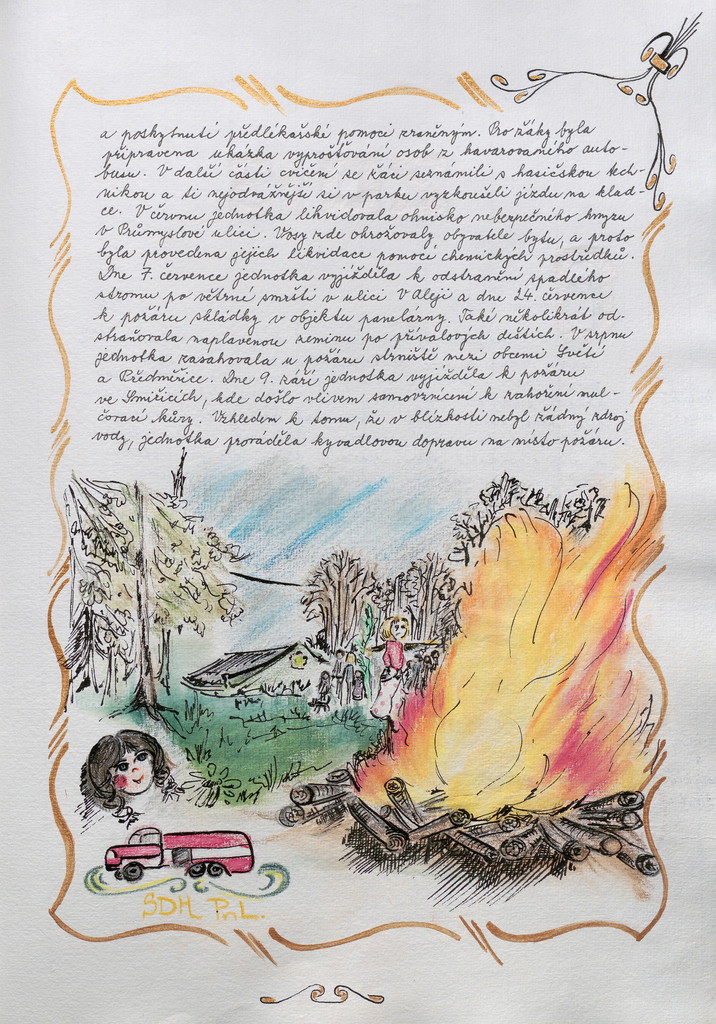 a poskytnutí předlékařské pomoci zraněným. Pro žáky byla
připravena ukázka vyprošťování osob z havarovaného auto-
busu. V další části cvičení se žáci seznámili s hasičskou tech-
nikou a ti nejodvážnější si v parku vyzkoušeli jízdu na klad-
ce. V červnu jednotka likvidovala ohnisko nebezpečného hmyzu
v Průmyslové ulici. Vosy zde ohrožovaly obyvatele bytu, a proto
byla provedena jejich likvidace pomocí chemických prostředků.
Dne 7. července jednotka vyjížděla k odstranění spadlého
stromu po větrné smršti v ulici V Aleji a dne 24. července
k požáru skládky v objektu panelárny. Také několikrát od-
straňovala naplavenou zeminu po přívalových deštích. V srpnu
jednotka zasahovala u požáru strniště mezi obcemi Světí
a Předměřice. Dne 9. září jednotka vyjížděla k požáru
ve Smiřicích, kde došlo vlivem samovznícení k zahoření mul-
čovací kůry. Vzhledem k tomu, že v blízkosti nebyl žádný zdroj
vody, jednotka prováděla kyvadlovou dopravu na místo požáru.
SDH PnL.